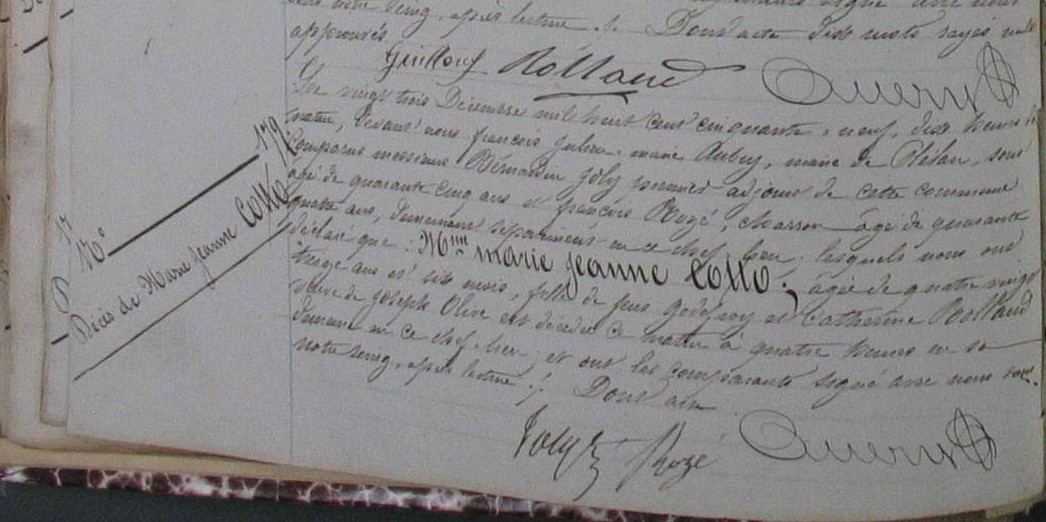 notre seing, après lecture ./. Dont acte dix mots rayés nuls
approuvés
Guillouf Rolland Auvry
Le vingt trois Décembre mil huit cent cinquante-neuf, dix heures du
matin, devant nous françois Julien marie Aubry, maire de Plélan, sont
comparus messieurs Joly premier adjoint de cette commune
âgé de quarante cinq ans et françois Rozé, chasson âgé de quarante
quatre ans, demeurant séparément en ce chef lieu; lesquels nous ont
déclaré que : Mme marie jeanne Collò; âgée de quatre vingt
treize ans et six mois, fille de feus godefroy et Catherine Rolland
veuve de joseph Olive est décédée ce matin à quatre heures en sa
demeure en ce chef-lieu; et ont les comparants signé avec nous sous
notre seing, après lecture ./. Dont acte
Joly Rozé
N° 179
Décès de Marie jeanne Collò